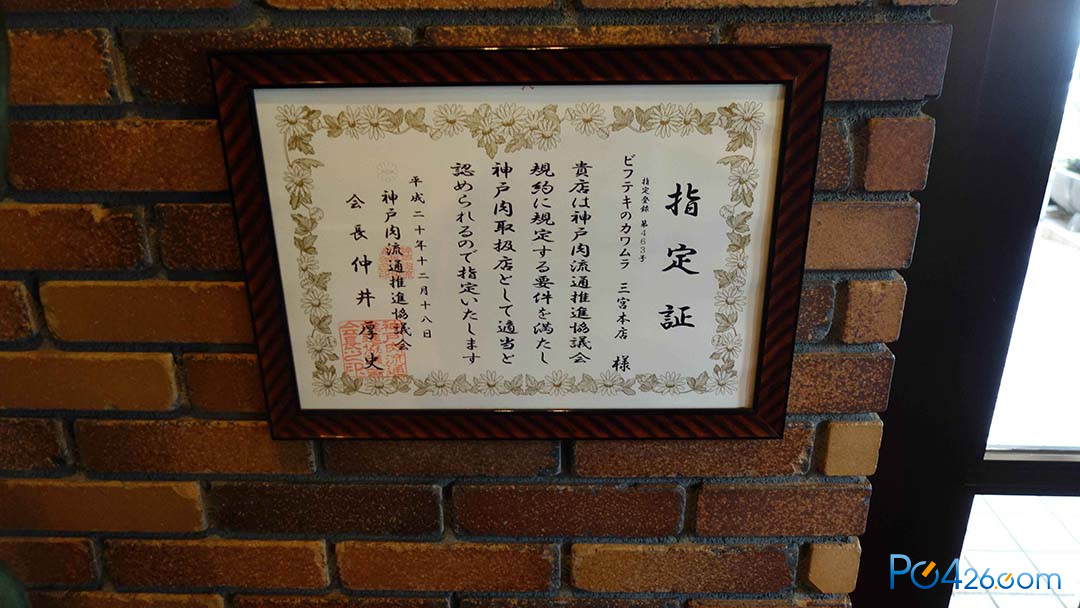 指定証
指定登録 第463号
ビフテキのカワムラ 三宮本店 様
貴店は神戸肉流通推進協議会
規約に規定する要件を満たし
神戸肉取扱店として適当と
認められるので指定いたします
平成二十年十二月十八日
神戸肉流通推進協議会
会長 仲井厚史
PC426com